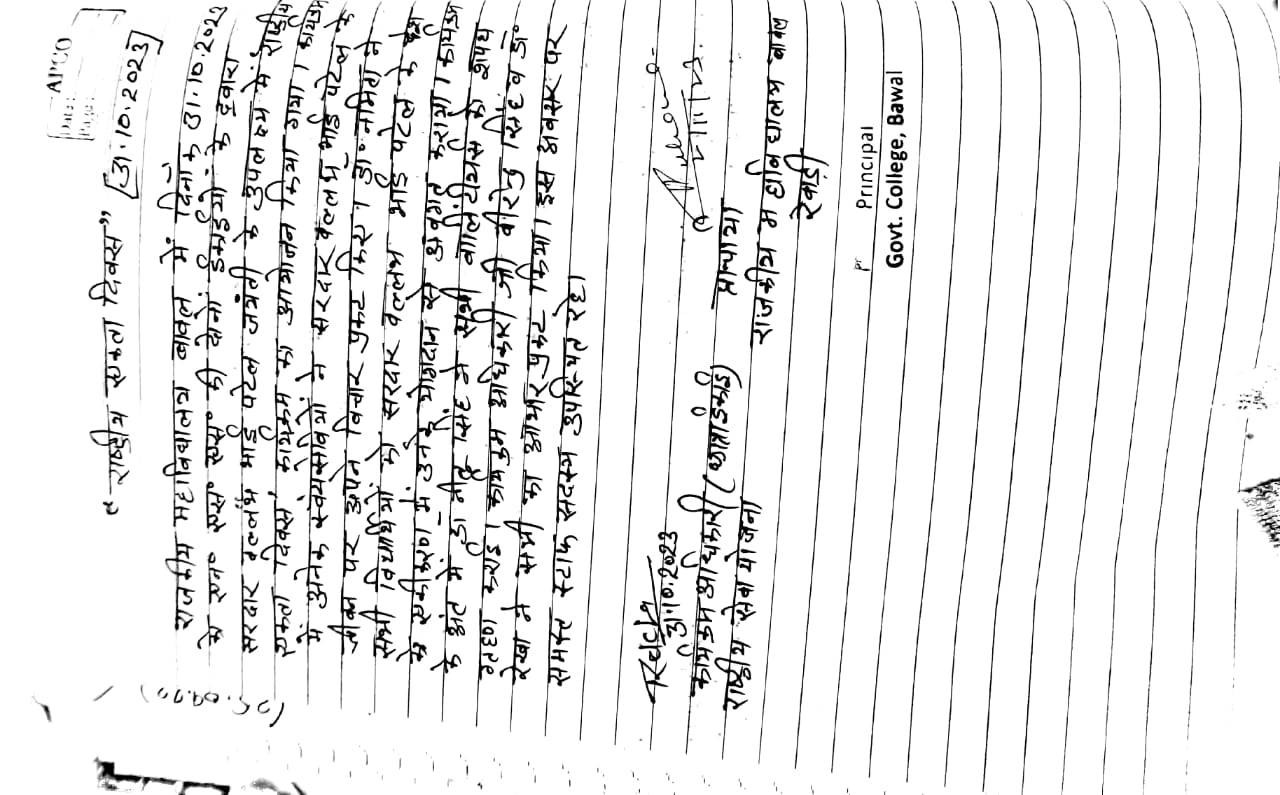 APCO
Date:
Page:
"राष्ट्रीय एकता दिवस" [31.10.2023]
राजकीय महाविद्यालय बावल में दिनांक 31.10.2023
के एन० एस० एस० की दोनों इकाइयों के द्वारा
सरदार वल्लभ भाई पटेल जयंती के उपलक्ष्य में राष्ट्रीय
एकता दिवस कार्यक्रम का आयोजन किया गया। कार्यक्रम
में अनेक स्वयंसेवकों ने सरदार वल्लभ भाई पटेल के
जीवन पर अपने विचार प्रकट किए। डा० नमिता ने
सभी विद्यार्थियों को सरदार वल्लभ भाई पटेल के देश
के एकीकरण में उनके योगदान से अवगत कराया। कार्यक्रम
के अंत में डा० सिंह ने सभी वालंटीयर्स को शपथ
ग्रहण कराई। कार्यक्रम अधिकारी श्री वीरेन्द्र सिंह व डा०
रेखा ने सभी का आभार प्रकट किया। इस अवसर पर
समस्त स्टाफ सदस्य उपस्थित रहे।
31.10.2023
कार्यक्रम अधिकारी (छात्रा इकाई)
राष्ट्रीय सेवा योजना
प्राचार्या
राजकीय महाविद्यालय बावल
रेवाड़ी
Principal
Govt. College, Bawal